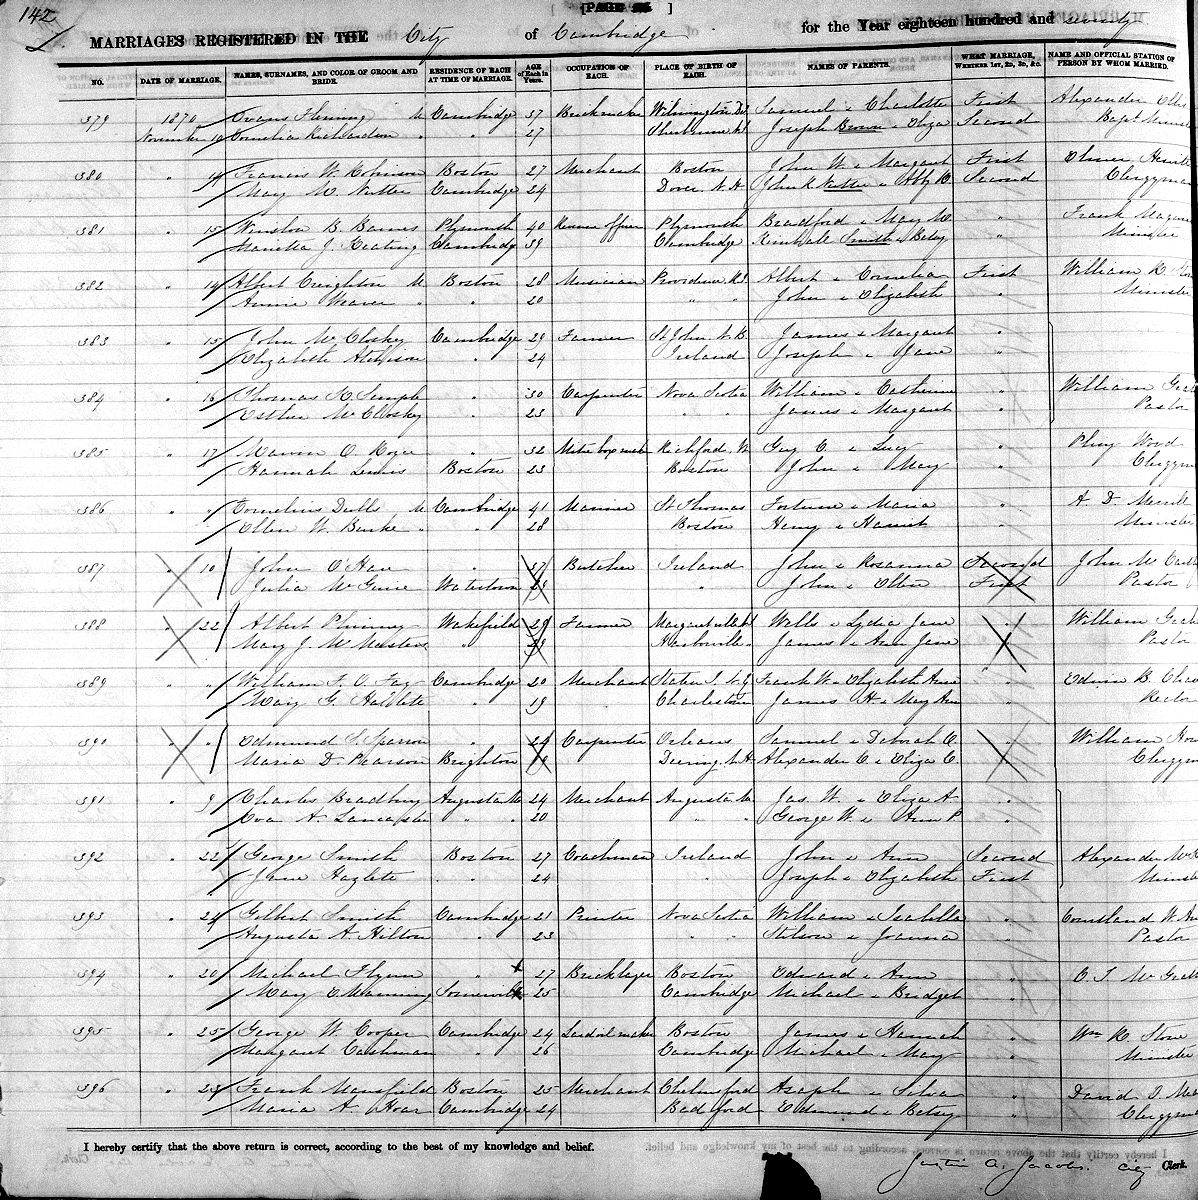 142
[PAGE
MARRIAGES REGISTERED IN THE City of Cambridge for the Year eighteen hundred and seventy
NO. DATE OF MARRIAGE. NAMES, SURNAMES, AND COLOR OF GROOM AND BRIDE. RESIDENCE OF EACH AT TIME OF MARRIAGE. AGE of Each in Years. OCCUPATION OF EACH. PLACE OF BIRTH OF EACH. NAMES OF PARENTS. WHAT MARRIAGE, WHETHER 1ST, 2D, 3D, &C. NAME AND OFFICIAL STATION OF PERSON BY WHOM MARRIED.
379 1870 Evans Fleming Cambridge 37 Brickmaker Wilmington Del Samuel & Charlotte First Alexander Ellis
November 10 Cornelia Richardson " 27 Joseph Brown & Eliza Second Bapt Minister
380 " 14 Francis W. Robinson Boston 27 Merchant Boston John W & Margaret First
Mary W. Nutter Cambridge 24 Dover N.H John R Nutter & Abby W. Second Clergyman
381 " 15 Winslow B. Barnes Plymouth 40 Plymouth Bradford & Mary W. " Frank
Marietta J. Keating Cambridge 39 Cambridge Kimball Smith & Betsy " Minister
382 " 14 Albert Creighton Boston 28 Musician Providence R.I. Albert & Cornelia First William
Annie Weaver " " 20 " " John & Elizabeth " Minister
383 " 15 John McCloskey Cambridge 29 Farmer St John N.B. James & Margaret "
Elizabeth Atchison " 24 Ireland Joseph & Jane "
384 " 16 Thomas K. Semple " 30 Carpenter Nova Scotia William & Catherine " William
Esther McCloskey " 23 " " James & Margaret " Pastor
385 " 17 " 32 Richford, Vt Guy C. & Lucy " Pliny Wood
Hannah Lewis Boston 23 Boston John & Mary " Clergyman
386 " " Cornelius Cambridge 41 Mariner St Thomas Fortune & Maria " A. D. Merrill
Ellen W. Burke " " 28 Boston Henry & Harriet " Minister
387 " 10 John O'Hare " 37 Butcher Ireland John & Rosanna Second John
Julia McGuire Watertown " John & Ellen First Pastor
388 " 22 Albert Phinney Wakefield 29 Farmer Wells & Lydia Jane " William
Mary J. McMasters " James & Ann Jane " Pastor
389 " " William F. O. Fay Cambridge 20 Merchant Staten I. N.Y Frank W. & Elizabeth Ann " Edwin B.
Mary G. Hallett " 19 Charlestown James H. & Mary Ann Rector
390 " " Edmund S. Sparrow " 24 Carpenter Orleans Samuel & Deborah " William
Maria D. Pearson Brighton Deering N.H Alexander C. & Eliza C. Clergyman
391 " 9 Charles Bradbury Augusta Me 24 Merchant Augusta Me Jas. W. & Eliza A "
Eva A. Lancaster " " 20 " " George W. & Ann P "
392 " 22 George Smith Boston 27 Coachman Ireland John & Ann Second Alexander
Jane Hazlett " " 24 " Joseph & Elizabeth First Minister
393 " 24 Gilbert Smith Cambridge 21 Printer Nova Scotia William & Isabella " Courtland W.
Augusta A. Hilton " 23 " " Stilson & Joanna " Pastor
394 " 20 Michael Flynn " 27 Bricklayer Boston Edward & Ann "
Mary E Manning Somerville 25 Cambridge Michael & Bridget "
395 " 25 George W. Cooper Cambridge 24 Boston James & Hannah " Wm R. Stone
Margaret Cashman " 26 Cambridge Michael & Mary " Minister
396 " 23 Frank Mansfield Boston 25 Merchant Chelmsford Asaph & " David
Maria A. Hoar Cambridge 24 Bedford Edmund & Betsy " Clergyman
I hereby certify that the above return is correct, according to the best of my knowledge and belief.
Justin A. Jacobs. City Clerk.